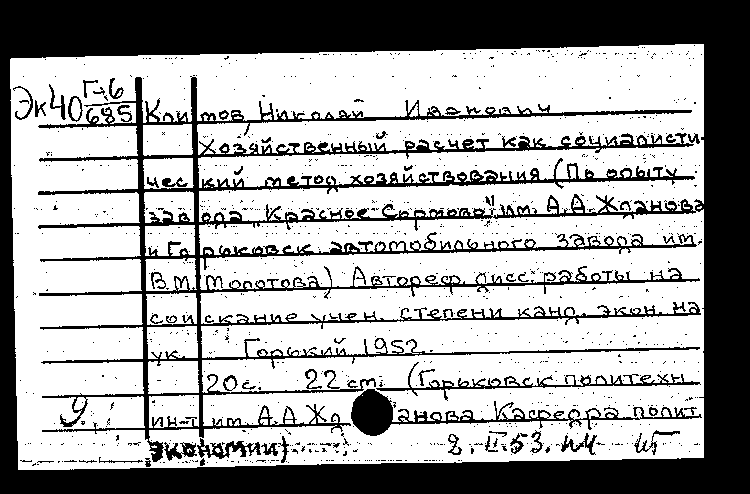 Эк40 Г-6/685 Климов, Николай Иванович
Хозяйственный расчет как социалисти-
ческий метод хозяйствования (По опыту
завода "Красное Сормово" им. А.А. Жданова
и Горьковск. автомобильного завода им.
В.М. Молотова) Автореф. дисс. работы на
соискание учен. степени канд. экон. на-
ук. Горький, 1952.
20с. 22 см. (Горьковск политехн
9. ин-т им. А.А. Жданова. Кафедра полит.
экономии)
2.II.53.